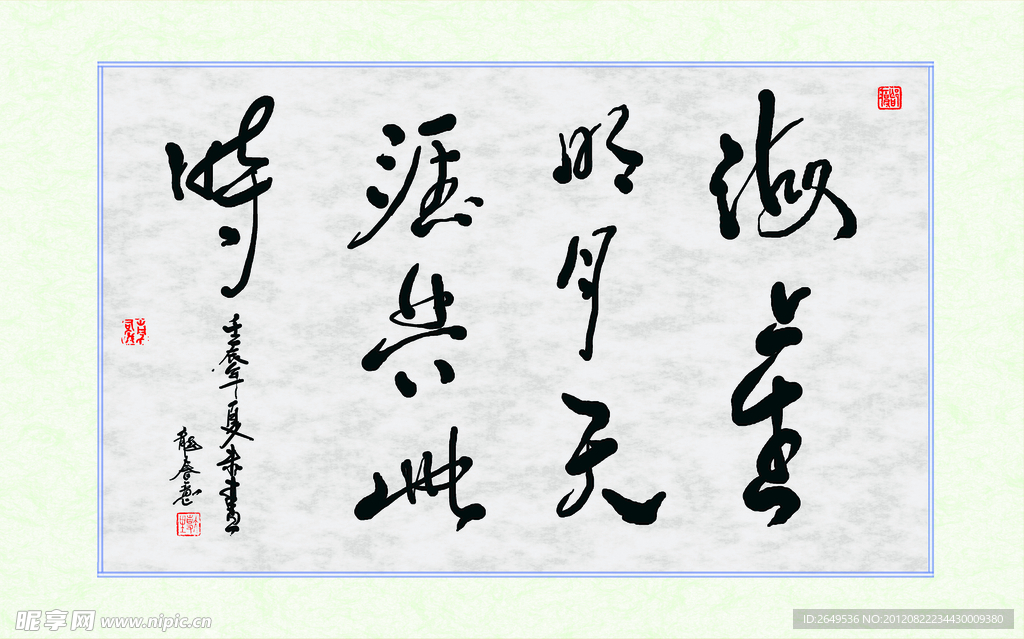 海上生
明月天
涯共此
時
壬辰年夏末書
龍唇意
昵享网 www.nipic.cn
ID:2649536 NO:20120822234430009380